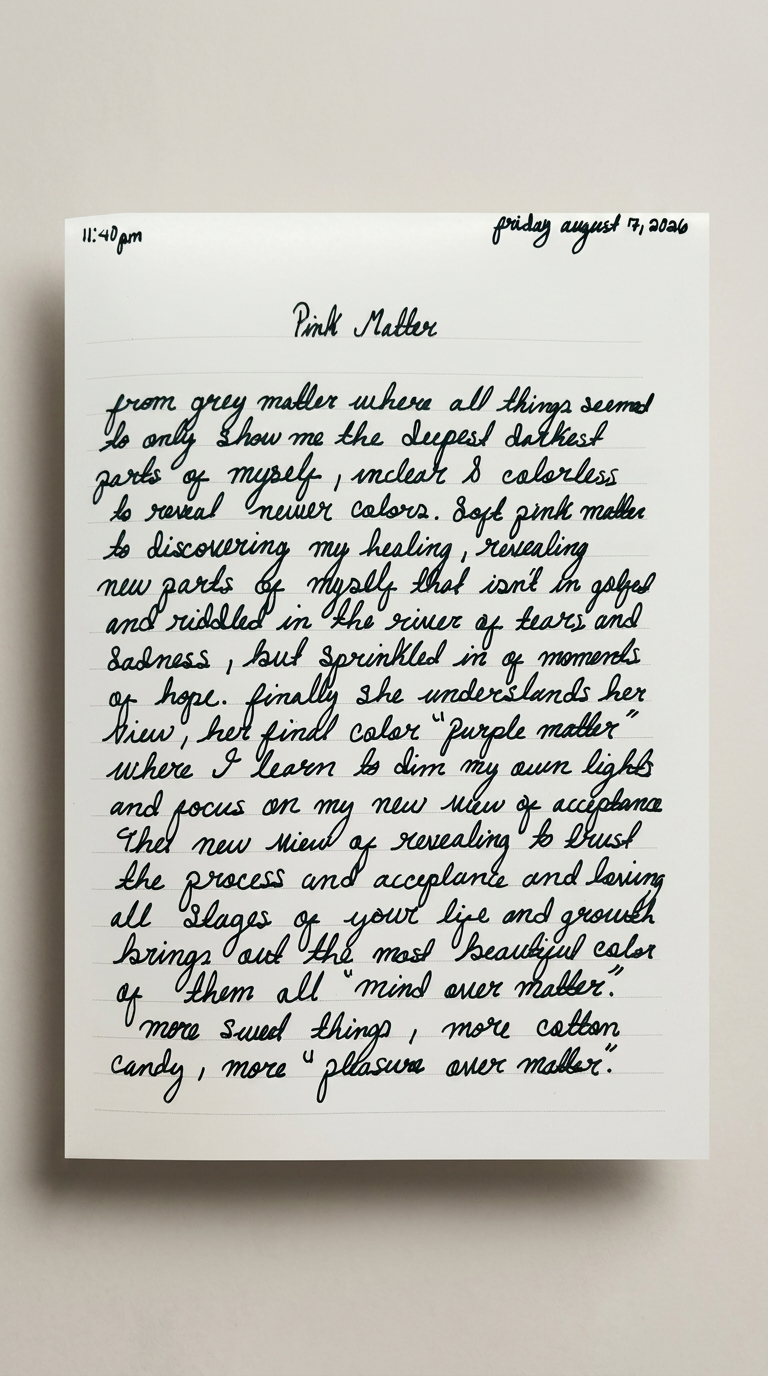 11:40pm
friday august 7, 2026
Pink Matter
from grey matter where all things seemed
to only show me the deepest darkest
parts of myself, inclear & colorless
to reveal newer colors. Soft pink matter
to discovering my healing, revealing
new parts of myself that isn't in golfed
and riddled in the river of tears and
sadness, but sprinkled in of moments
of hope. finally she understands her
view, her final color "purple matter"
where I learn to dim my own lights
and focus on my new view of acceptance
The new view of revealing to trust
the process and acceptance and loving
all stages of your life and growth
brings out the most beautiful color
of them all "mind over matter".
more sweet things, more cotton
candy, more "pleasure over matter".